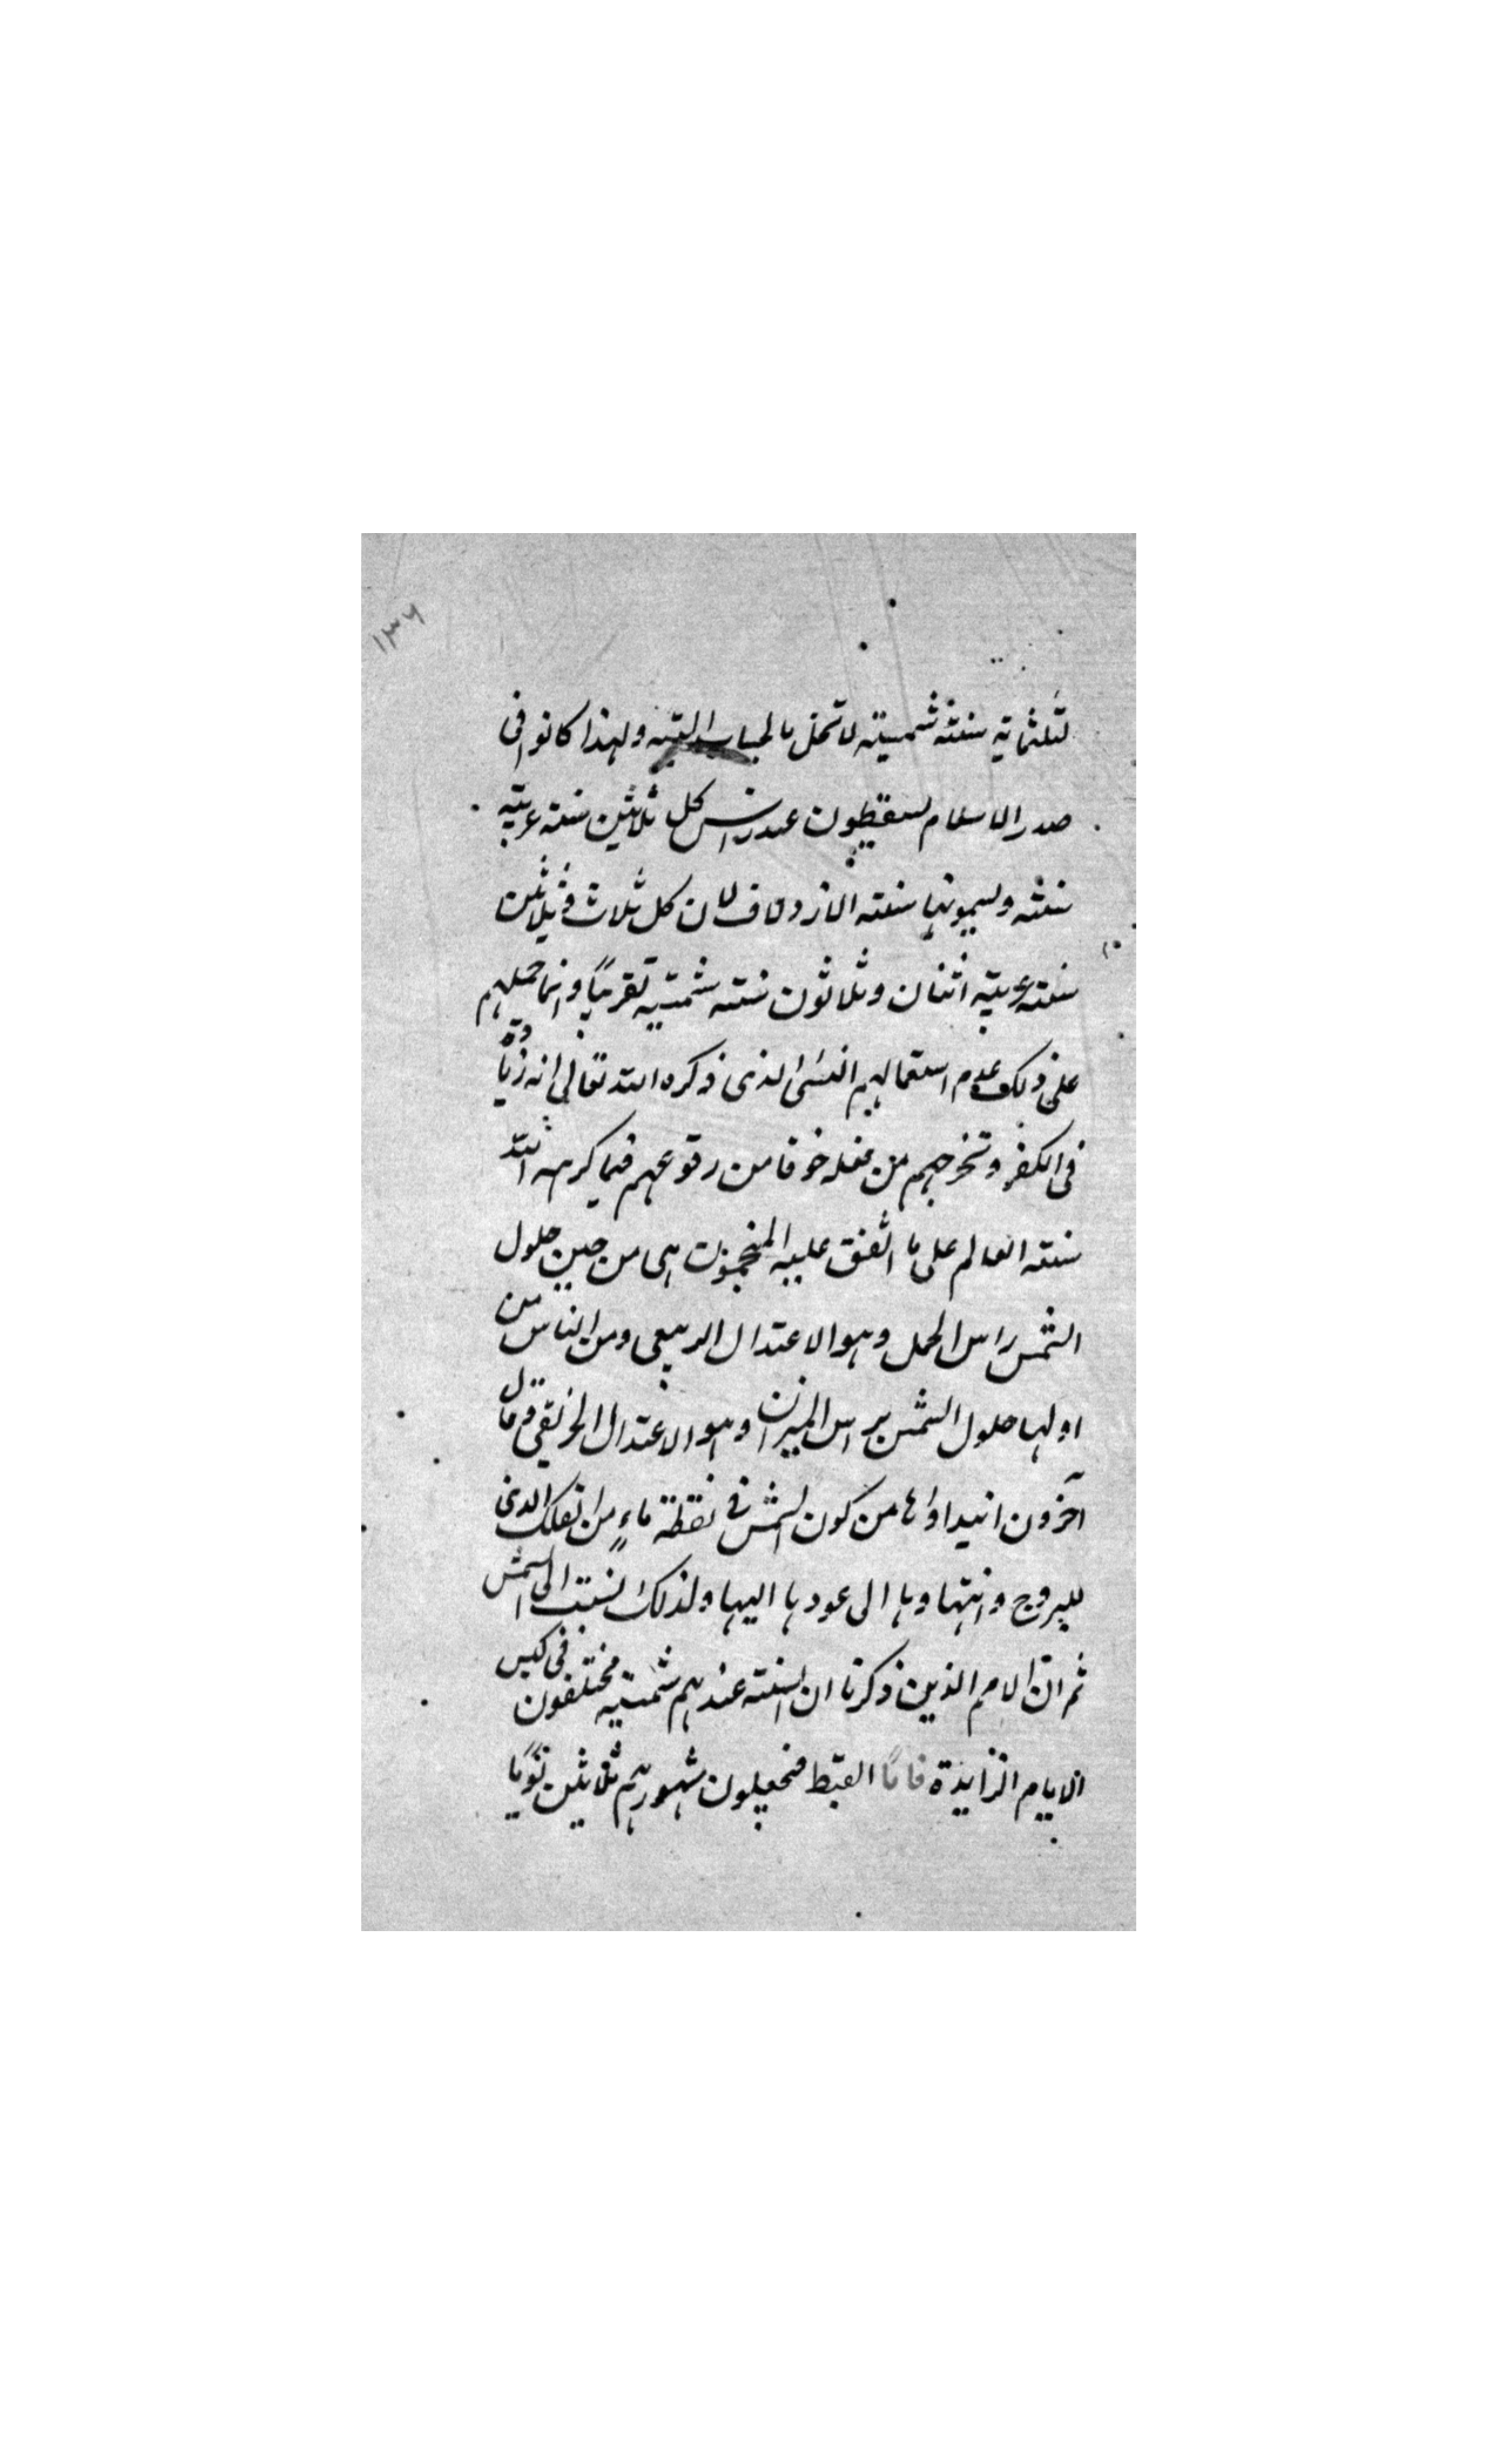 ١٣٦
لثلثماية سنة شمسية لا تخل بالحساب البتة ولهذا كانوا فى
صدر الاسلام يسقطون عند راس كل ثلاثين سنة عربية
سنة ويسمونها سنة الازدلاف لان كل ثلاث وثلاثين
سنة عربية اثنان وثلاثون سنة شمسية تقريبًا وانما حملهم
على ذلك عدم استعمالهم النسئ الذى ذكره الله تعالى انه زيادة
فى الكفر وتخرجهم من فعله خوفا من وقوعهم فيما كرهه الله
سنة العالم على ما اتفق عليه المنجمون هى من حين حلول
الشمس راس الحمل وهو الاعتدال الربيعى ومن الناس من
اولها حلول الشمس براس الميزان وهو الاعتدال الخريفى وقال
آخرون ابتداوها من كون الشمس فى نقطة ماءٍ من الفلك الذى
للبروج وانتهاوها الى عودها اليها ولذلك نسبت الى الشمس
ثم انّ الامم الذين ذكرنا ان السنة عندهم شمسية مختلفون فى كبس
الايام الزايدة فامّا القبط فيجعلون شهورهم ثلاثين يومًا